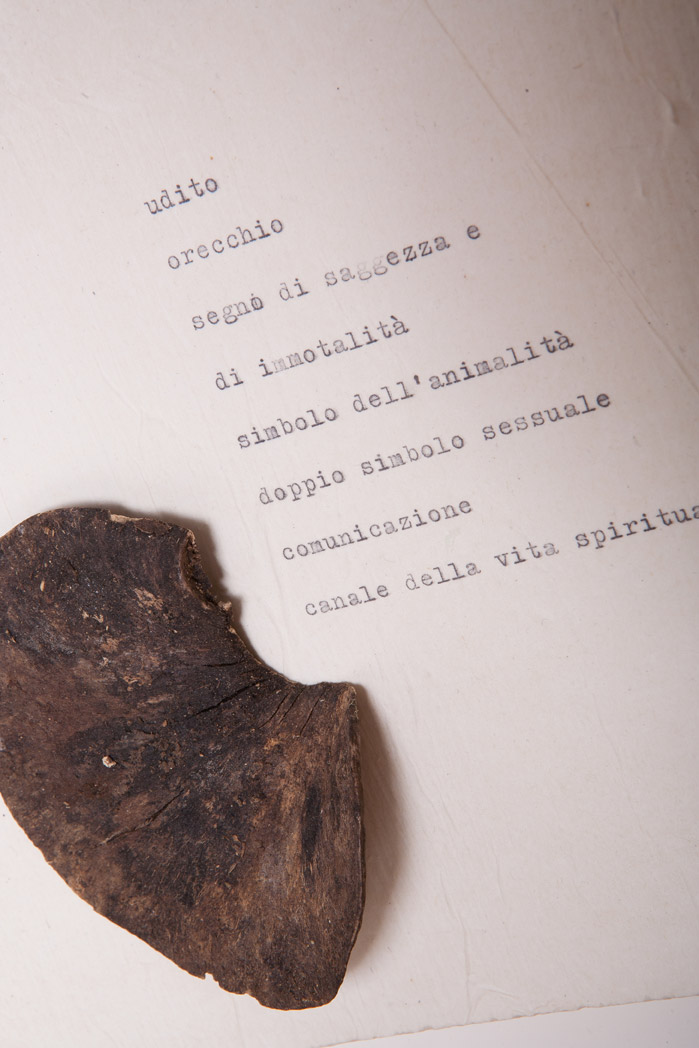 udito
orecchio
segno di saggezza e
di immotalità
simbolo dell'animalità
doppio simbolo sessuale
comunicazione
canale della vita spiritua